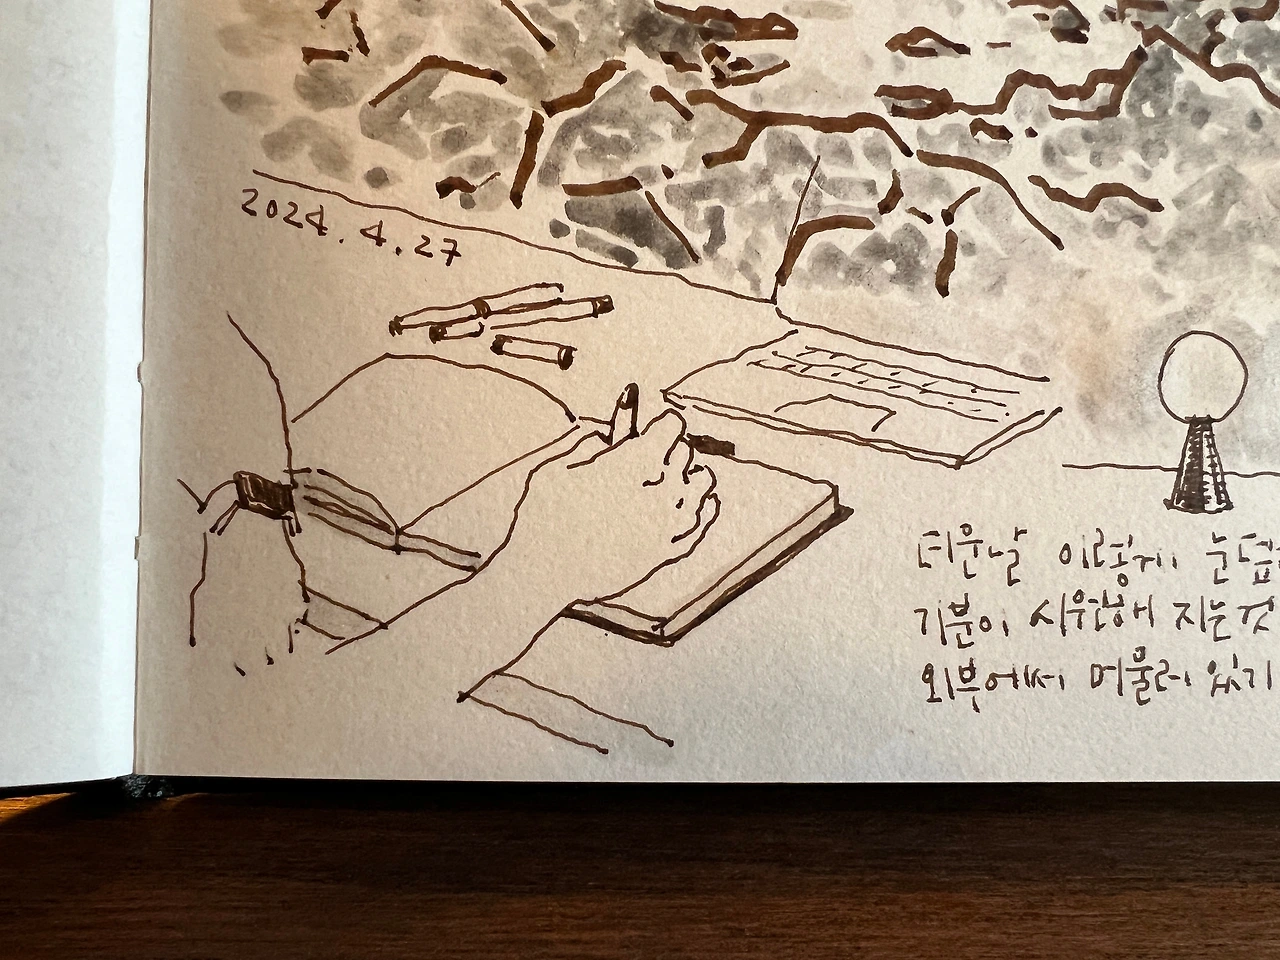 2024.4.27
더운날 이렇게 눈덮
기분이 시원해 지는것
외부에서 머물러 있기